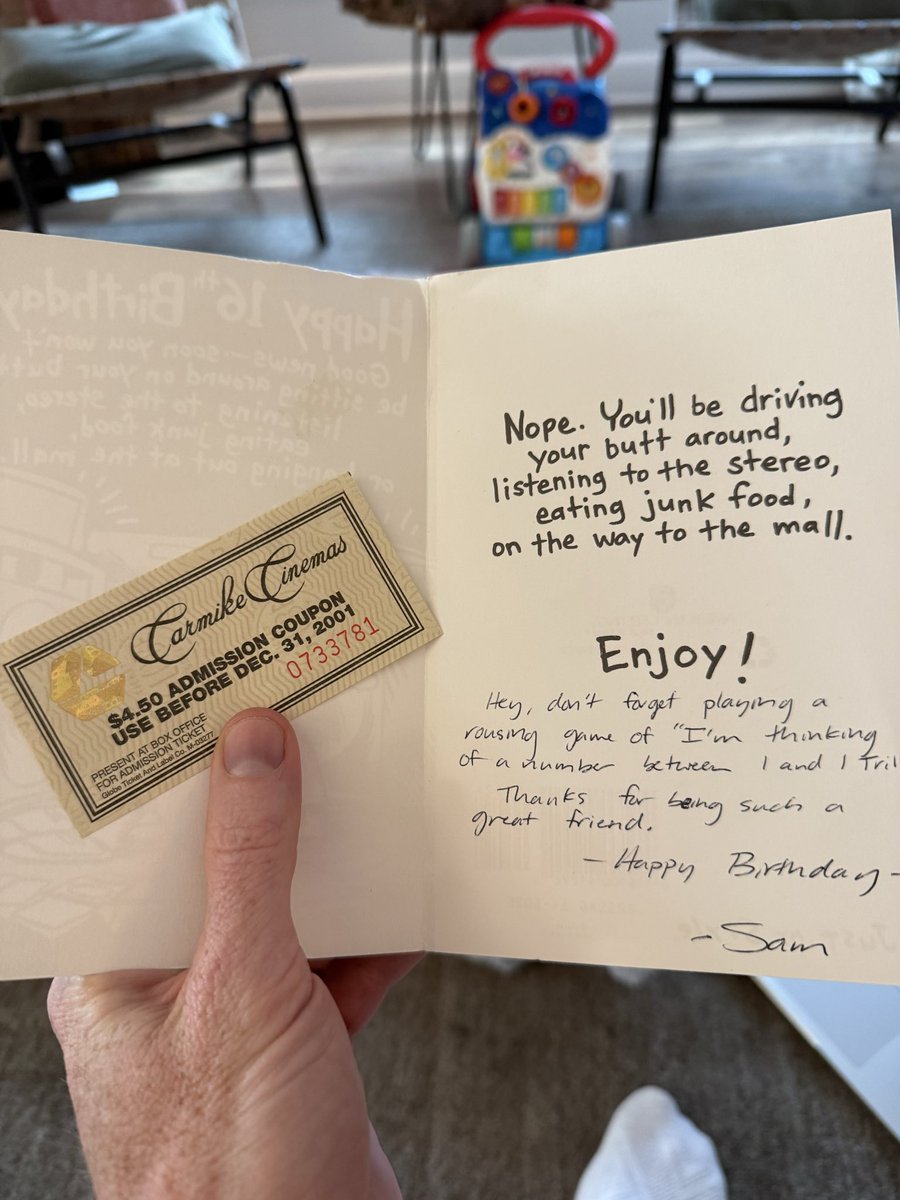 Happy 16th Birthday
Good news—soon you won't
be sitting around on your butt
listening to the stereo,
eating junk food
or hanging out at the mall.
Carmike Cinemas
$4.50 ADMISSION COUPON
USE BEFORE DEC. 31, 2001
0733781
PRESENT AT BOX OFFICE
FOR ADMISSION TICKET
Globe Ticket And Label Co. M-03277
Nope. You'll be driving
your butt around,
listening to the stereo,
eating junk food,
on the way to the mall.
Enjoy!
Hey, don't forget playing a
rousing game of "I'm thinking
of a number between 1 and 1 Tril
Thanks for being such a
great friend.
- Happy Birthday -
- Sam